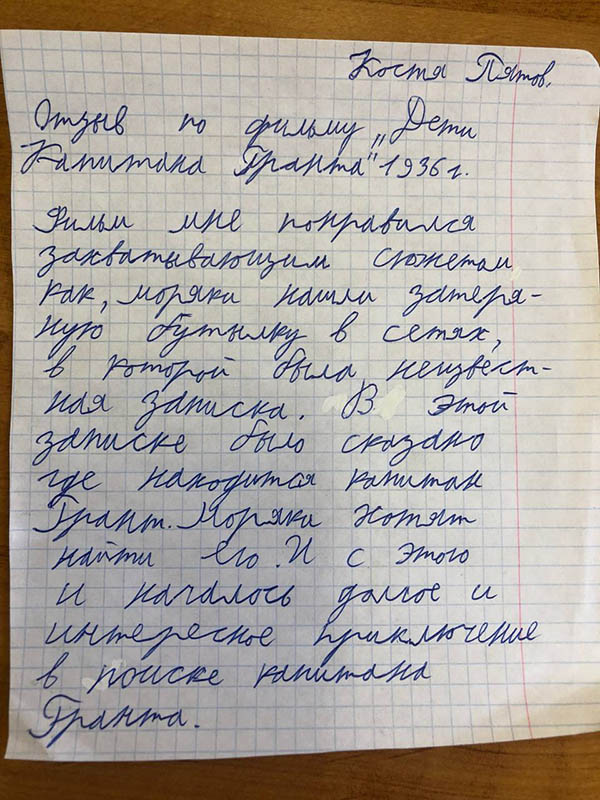 Костя Пятов.
Отзыв по фильму „Дети
Капитана Гранта" 1936 г.
Фильм мне понравился
захватывающим сюжетом,
как, моряки нашли затеря-
ную бутылку в сетях,
в которой была неизвест-
ная записка. В этой
записке было сказано
где находится капитан
Грант. Моряки хотят
найти его. И с этого
и началось долгое и
интересное приключение
в поиске капитана
Гранта.